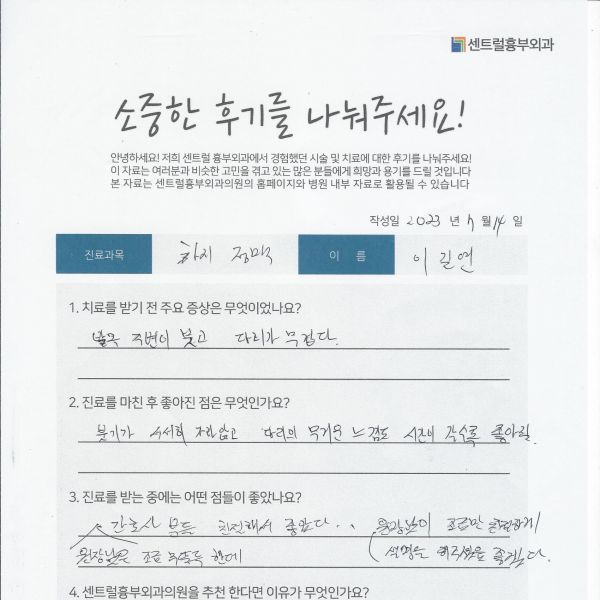 센트럴흉부외과
소중한 후기를 나눠주세요!
안녕하세요! 저희 센트럴 흉부외과에서 경험했던 시술 및 치료에 대한 후기를 나눠주세요!
이 자료는 여러분과 비슷한 고민을 겪고 있는 많은 분들에게 희망과 용기를 드릴 것입니다
본 자료는 센트럴흉부외과의원의 홈페이지와 병원 내부 자료로 활용될 수 있습니다
작성일 2023 년 7 월 14 일
진료과목 하지 정맥 이 름 이길연
1. 치료를 받기 전 주요 증상은 무엇이었나요?
발목 주변이 붓고 다리가 무겁다.
2. 진료를 마친 후 좋아진 점은 무엇인가요?
붓기가 서서히 가라앉고 다리의 무거운 느낌도 시간이 갈수록 좋아짐.
3. 진료를 받는 중에는 어떤 점들이 좋았나요?
간호사 분들 친절해서 좋았다.. 원장님이 조금만 친절하게
원장님은 조금 무뚝뚝 한데 설명을 해주셨음 좋겠다.
4. 센트럴흉부외과의원을 추천 한다면 이유가 무엇인가요?